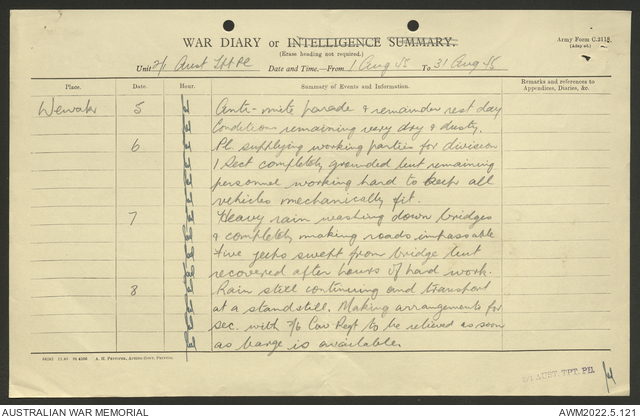 WAR DIARY or INTELLIGENCE SUMMARY.
(Erase heading not required.)
Army Form C.2118.
Unit 2/1 Aust Tpt Pl Date and Time.—From 1 Aug 45 To 31 Aug 45
Place. Date. Hour. Summary of Events and Information. Remarks and references to Appendices, Diaries, &c.
Wewak 5 Anti-mite parade & remainder rest day
Conditions remaining very dry & dusty.
6 Pl supplying working parties for division
1 Sect completely grounded but remaining
personnel working hard to keep all
vehicles mechanically fit.
7 Heavy rain washing down bridges
& completely making roads impassable
five jeeps swept from bridge but
recovered after hours of hard work.
8 Rain still continuing and transport
at a standstill. Making arrangements for
sec. with 2/6 Cav Regt to be relieved as soon
as barge is available.
AUST. TPT. PL.
AUSTRALIAN WAR MEMORIAL
AWM2022.5.121